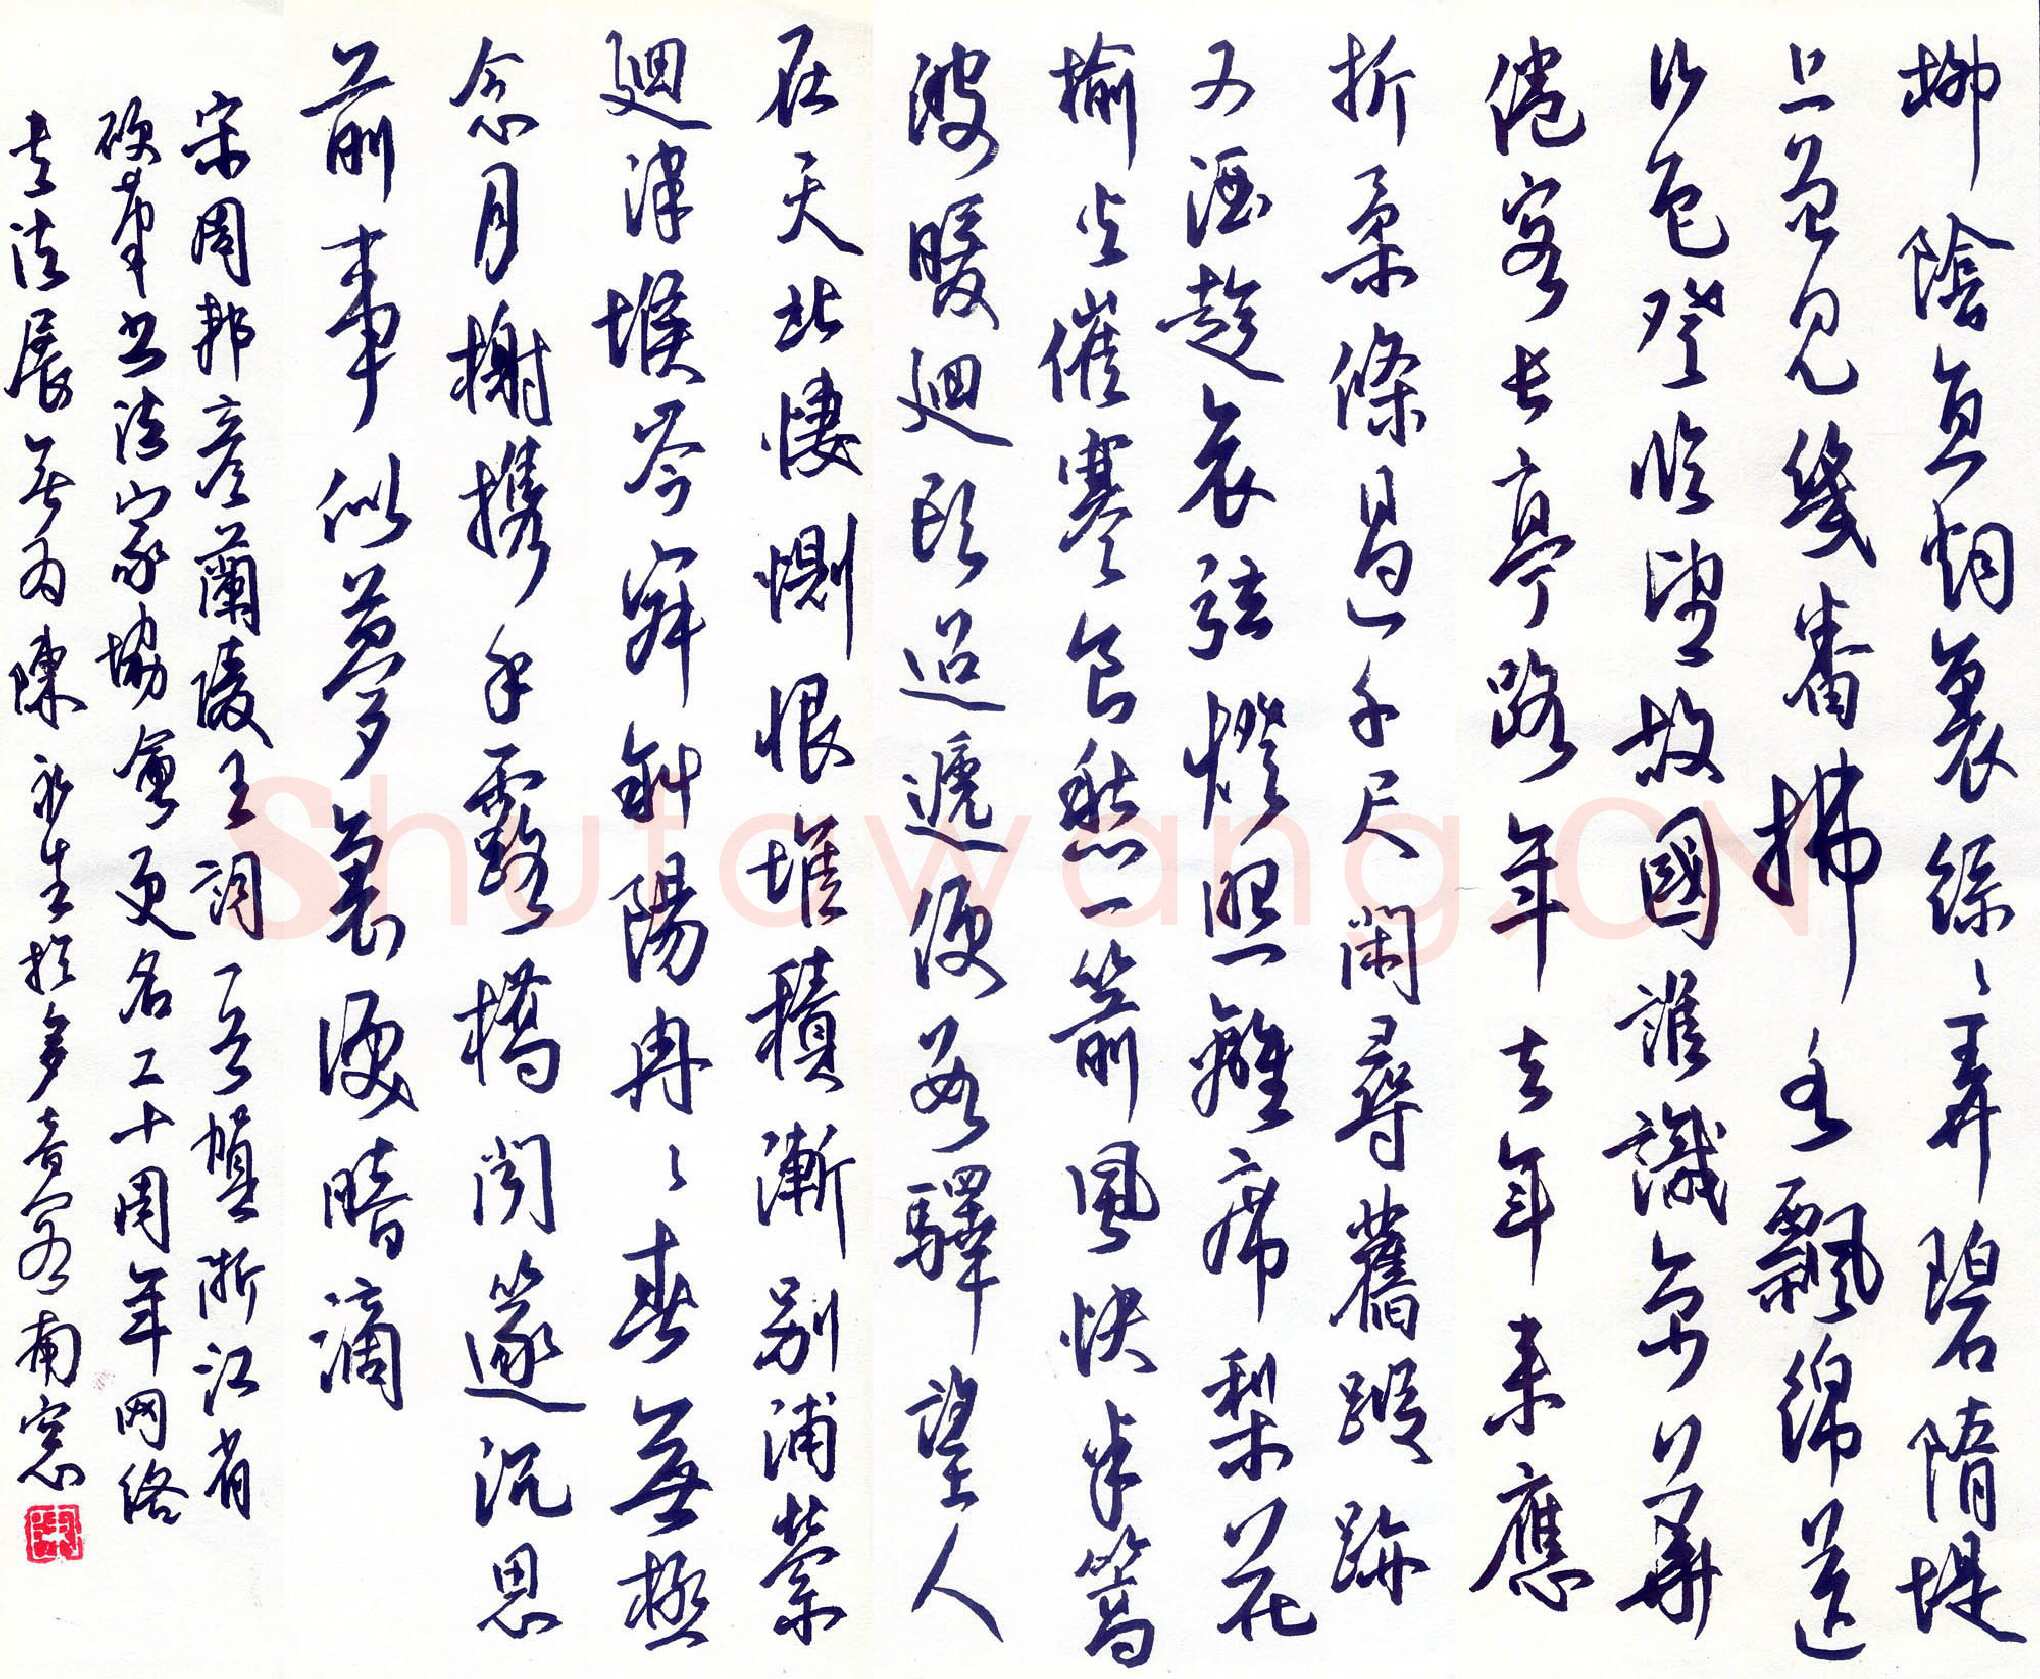 柳陰直烟裏絲〻弄碧隋堤
上曾見幾番拂水飄綿送
行色登臨望故國誰識京華
倦客長亭路年去年來應
折柔條過千尺閑尋舊蹤跡
又酒趁哀弦燈照離席梨花
榆火催寒食愁一箭風快半篙
波暖廻頭迢遞便數驛望人
在天北悽惻恨堆積漸別浦縈
廻津堠岑寂斜陽冉〻春無極
念月榭携手露橋聞邃沉思
前事似夢裏淚暗滴
宋周邦彥蘭陵王詞一首賀浙江省
硬筆書法家協會更名二十周年网络
書法展 陳 生於 南窓
Shufawang.CN